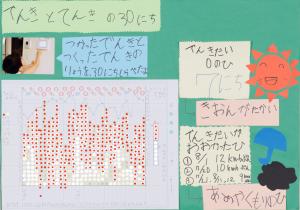 でんきとてんきの30にち
つかったでんきと
つくったでんきの
りょうを30にちしらべたよ
でんきだい
0のひ
7にち
きおんがたかい
でんきだいが
おおかったひ
① 8/1 12kwh
② 7/20 10kwh
③
あめやくもりのひ